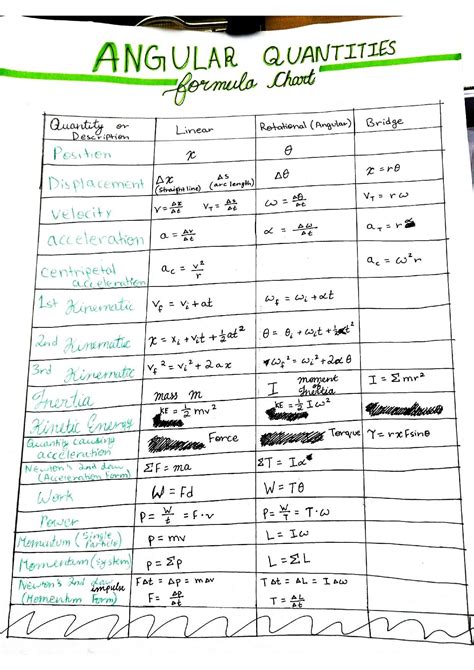 ANGULAR QUANTITIES
formula Chart
Quantity or Description Linear Rotational (Angular) Bridge
Position x θ
Displacement Δx (straight line) Δs (arc length) Δθ x = rθ
Velocity v = Δx/Δt v_T = Δs/Δt ω = Δθ/Δt v_T = rω
acceleration a = Δv/Δt α = Δω/Δt a_T = rα
Centripetal acceleration a_c = v²/r a_c = ω²r
1st Kinematic v_f = v_i + at ω_f = ω_i + αt
2nd Kinematic x = x_i + v_i t + ½at² θ = θ_i + ω_i t + ½αt²
3rd Kinematic v_f² = v_i² + 2ax ω_f² = ω_i² + 2αθ
Inertia mass m I moment of Inertia I = Σmr²
Kinetic Energy KE = ½mv² KE = ½Iω²
Quantity causing acceleration Force Torque τ = rxFsinθ
Newton's 2nd Law (Acceleration Form) ΣF = ma ΣT = Iα
Work W = Fd W = Tθ
Power P = W/t = F·v P = W/T = T·ω
Momentum (Single Particle) p = mv L = Iω
Momentum (System) p = Σp L = ΣL
Newton's 2nd Law impulse (Momentum Form) FΔt = Δp = mΔv TΔt = ΔL = IΔω
F = Δp/Δt T = ΔL/Δt